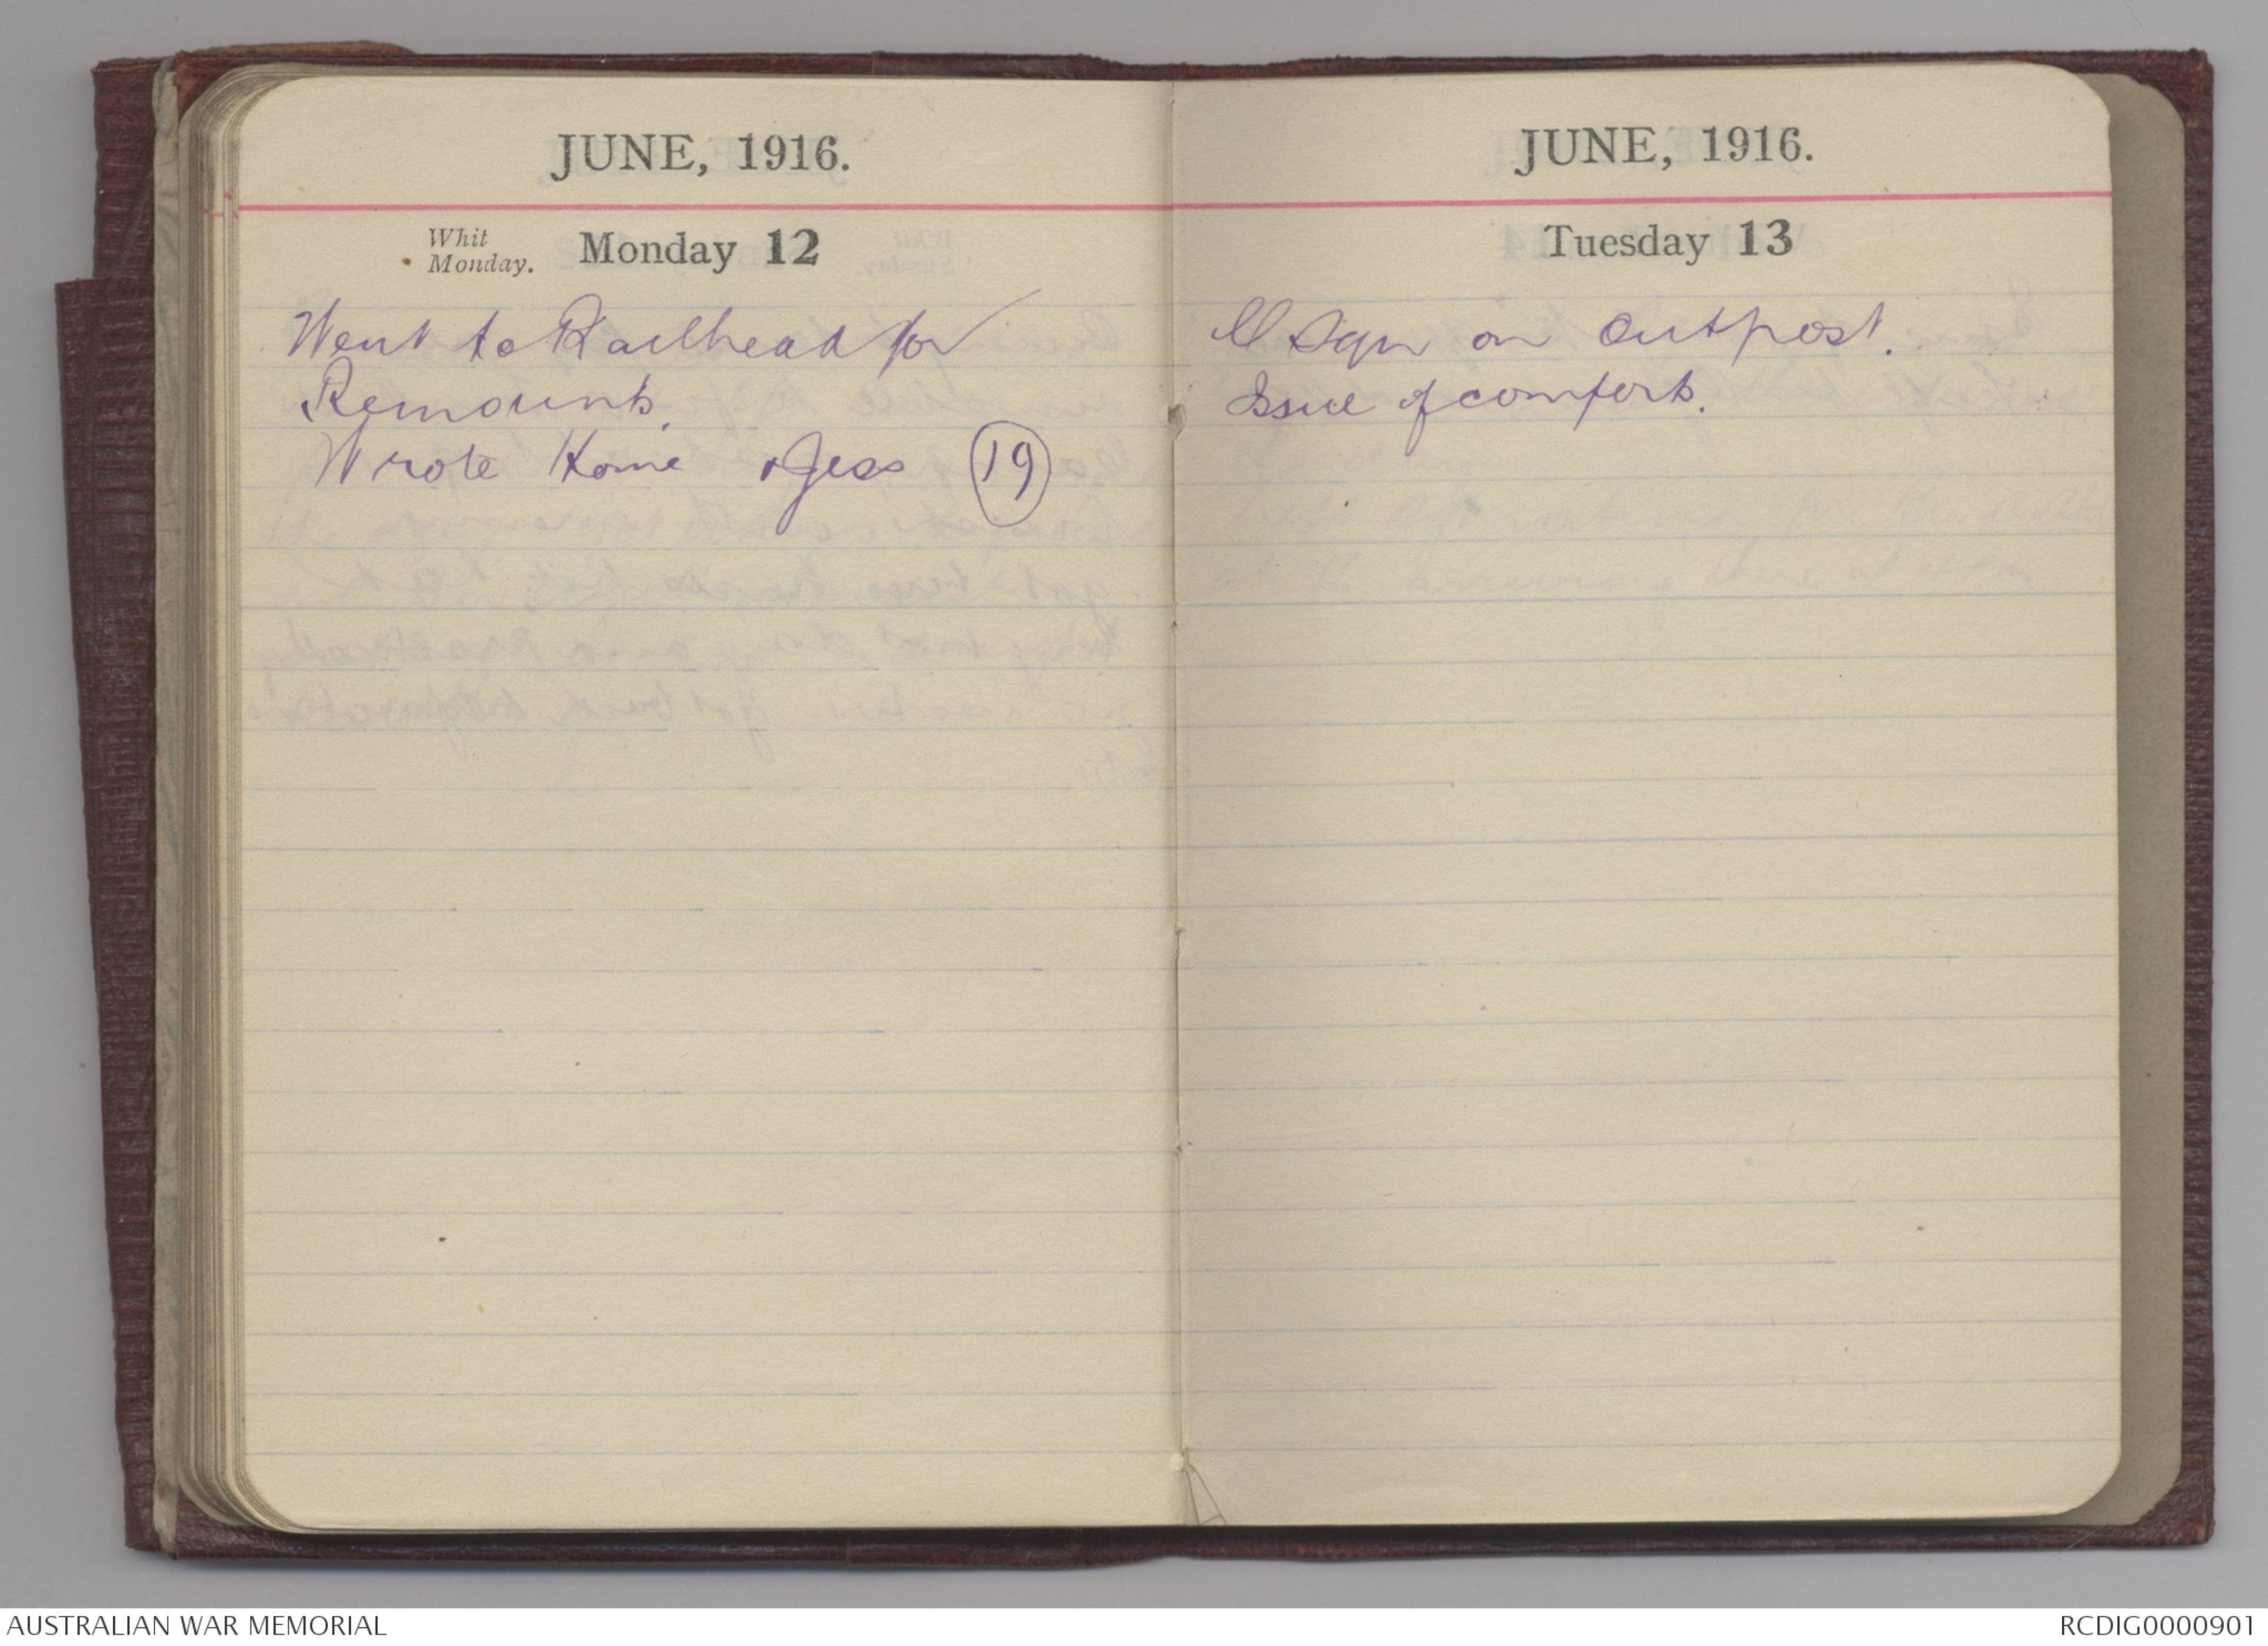 JUNE, 1916.
Whit
Monday. Monday 12
Went to Railhead for
Remounts.
Wrote Home & Jess (19)
JUNE, 1916.
Tuesday 13
Sqn on Outpost.
Issue of comforts.
AUSTRALIAN WAR MEMORIAL
RCDIG0000901